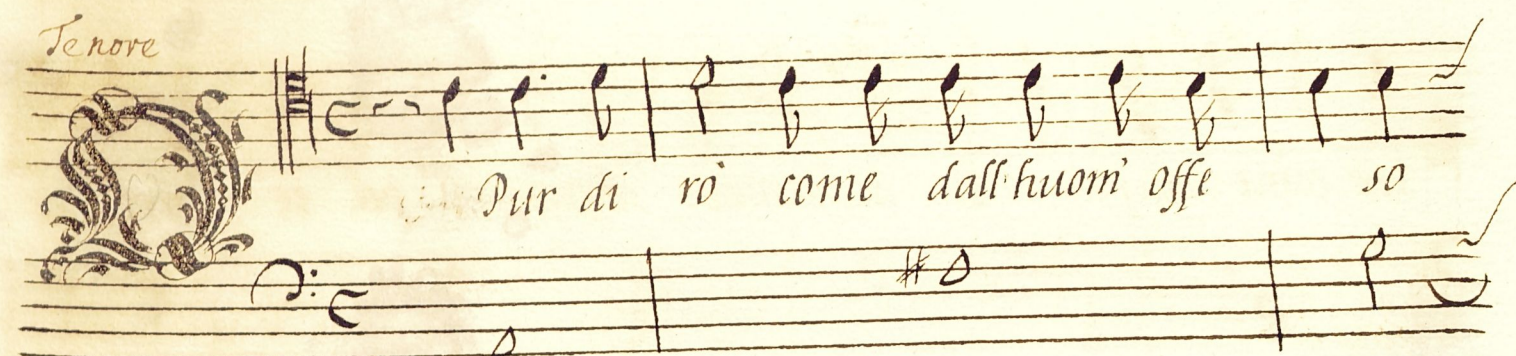 Tenore
Pur di rò come dall'huom' offe so